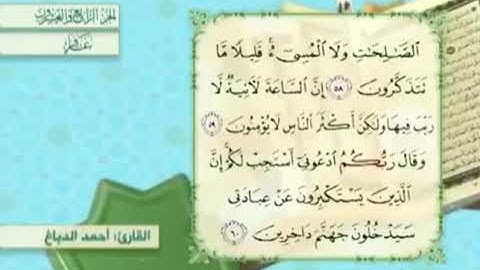 الجزء الرابع والعشرون
غافر
ٱلصَّٰلِحَٰتِ وَلَا ٱلْمُسِىٓءُ ۚ قَلِيلًا مَّا
تَتَذَكَّرُونَ ٥٨ إِنَّ ٱلسَّاعَةَ لَءَاتِيَةٌ لَّا
رَيْبَ فِيهَا وَلَٰكِنَّ أَكْثَرَ ٱلنَّاسِ لَا يُؤْمِنُونَ ٥٩
وَقَالَ رَبُّكُمُ ٱدْعُونِىٓ أَسْتَجِبْ لَكُمْ ۚ إِنَّ
ٱلَّذِينَ يَسْتَكْبِرُونَ عَنْ عِبَادَتِى
سَيَدْخُلُونَ جَهَنَّمَ دَاخِرِينَ ٦٠
القارئ: أحمد الدباغ